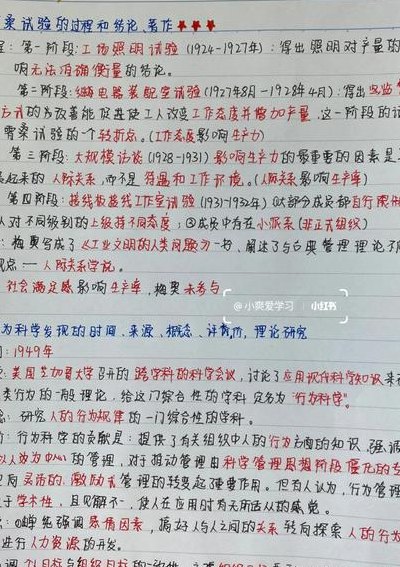 桑试验的过程和结论、著作★★★
：第一阶段：工场照明试验（1924-1927年）：得出照明对产量的
响无法准确衡量的结论。
第二阶段：继电器装配室试验（1927年8月-1928年4月）：得出
方式的为改善能促进使工人改变工作态度并增加产量，这一阶段的
霍桑试验的一个转折点。（工作态度影响生产力）
第三阶段：大规模访谈（1928-1931）影响生产力的最重要的因素是
起来的人际关系，而不是待遇和工作环境。（人际关系影响生产率）
第四阶段：接线板接线工作室试验（1931-1932年）①大部分成员都自行限
对不同级别的上级持不同态度；③成员中存在小派系（非正式组织）
：梅奥写成了《工业文明的人类问题》一书，阐述了与古典管理理论不
观点——人际关系学说。
社会满足感影响生产率，梅奥未参与
@小爽爱学习 小红书
为科学发现的时间、来源、概念、评价、理论研究
：1949年
：美国芝加哥大学召开的跨学科的科学会议，讨论了应用现代科学知识来
类行为的一般理论，给这门综合性的学科定名为“行为科学”。
：研究人的行为规律的一门综合性的学科。
：行为科学的贡献是：提供了有关组织中人的行为方面的知识，强调
以人为中心的管理，对于推动管理由科学管理思想阶段
向灵活的、激励式管理的转变起了重要作用。但有人认为，行为管理
于学术性，且见解不一，使人在应用时有无所适从的感觉。
：①首先强调感情因素，搞好人与人之间的关系转向探索人的行为
进行人力资源的开发。